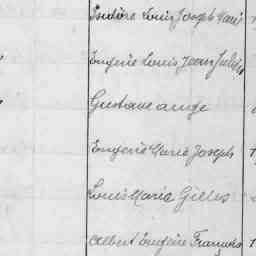 Isidore Louis Joseph Marie
Eugène Louis Jean Jules
Gustave ange
Eugène Marie Joseph
Louis Maria Gilles
Albert Eugène François